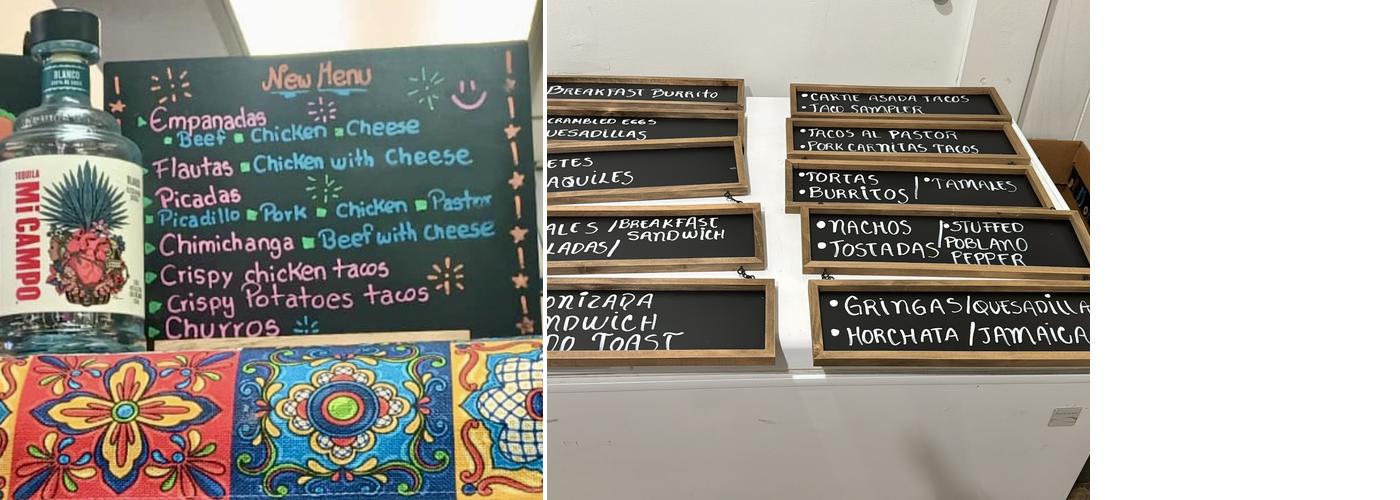 BLANCO
TEQUILA
Mi CAMPO
BLANCO
New Menu
Empanadas
Beef Chicken Cheese
Flautas Chicken with Cheese
Picadas
Picadillo Pork Chicken Pastor
Chimichanga Beef with cheese
Crispy chicken tacos
Crispy Potatoes tacos
Churros
BREAKFAST BURRITO
CRAMBLED EGGS
UESADILLAS
ETES
AQUILES
ALES /BREAKFAST
SANDWICH
LADAS/
ONIZADA
NDWICH
DO TOAST
•CARNE ASADA TACOS
•TACO SAMPLER
•TACOS AL PASTOR
•PORK CARNITAS TACOS
•TORTAS
•BURRITOS /•TAMALES
•NACHOS /•STUFFED
•TOSTADAS POBLANO
PEPPER
•GRINGAS/QUESADILLA
•HORCHATA /JAMAICA